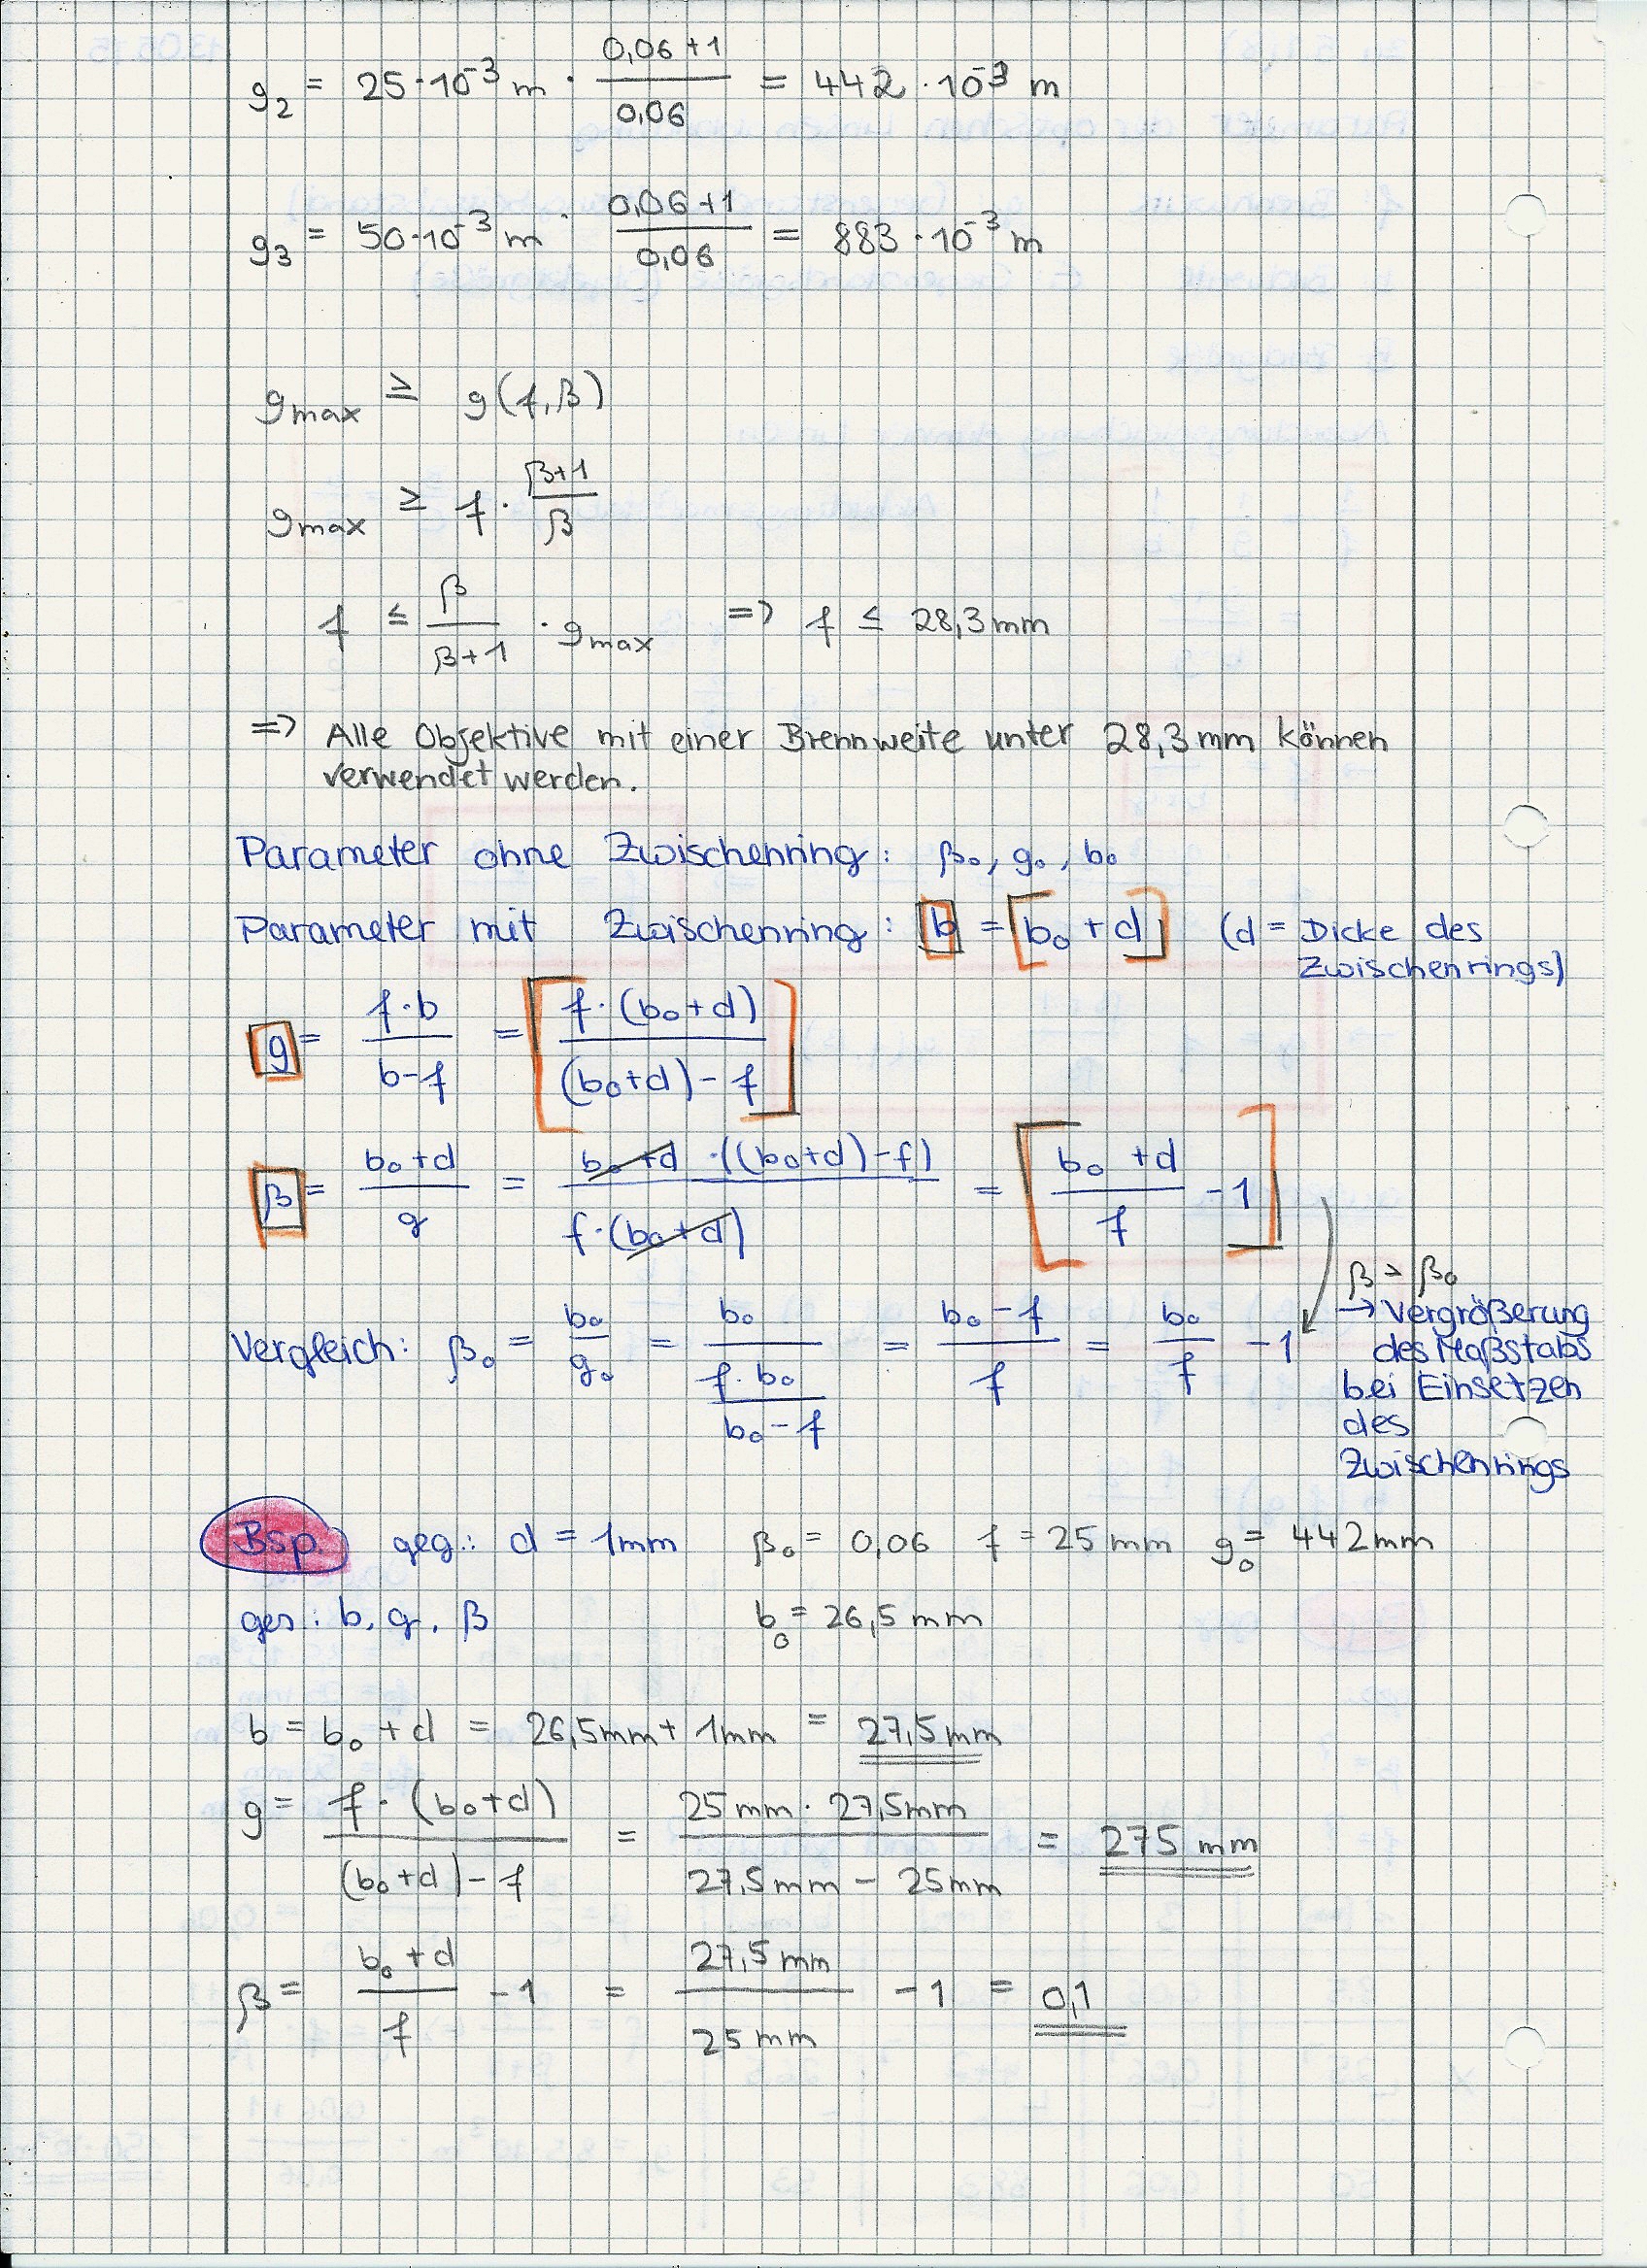 g₂ = 25·10⁻³ m · (0,06+1)/0,06 = 442·10⁻³ m
g₃ = 50·10⁻³ m · (0,06+1)/0,06 = 883·10⁻³ m
gmax ≥ g(f,β)
gmax ≥ f · (β+1)/β
f ≤ β/(β+1) · gmax => f ≤ 28,3mm
=> Alle Objektive mit einer Brennweite unter 28,3mm können
verwendet werden.
Parameter ohne Zwischenring: β₀, g₀, b₀
Parameter mit Zwischenring: b = [b₀ + d] (d = Dicke des
Zwischenrings)
g = (f·b)/(b-f) = [f·(b₀+d)/((b₀+d)-f)]
β = (b₀+d)/g = (b₀+d ·((b₀+d)-f))/(f·(b₀+d)) = [(b₀+d)/f -1]
β > β₀
→ Vergrößerung
des Maßstabs
bei Einsetzen
des
Zwischenrings
Vergleich: β₀ = b₀/g₀ = b₀/((f·b₀)/(b₀-f)) = (b₀-f)/f = b₀/f -1
Bsp. geg.: d = 1mm β₀ = 0,06 f = 25mm g₀ = 442mm
ges.: b, g, β b₀ = 26,5mm
b = b₀ + d = 26,5mm + 1mm = 27,5mm
g = f·(b₀+d)/((b₀+d)-f) = (25mm · 27,5mm)/(27,5mm - 25mm) = 275mm
β = (b₀+d)/f -1 = 27,5mm/25mm -1 = 0,1